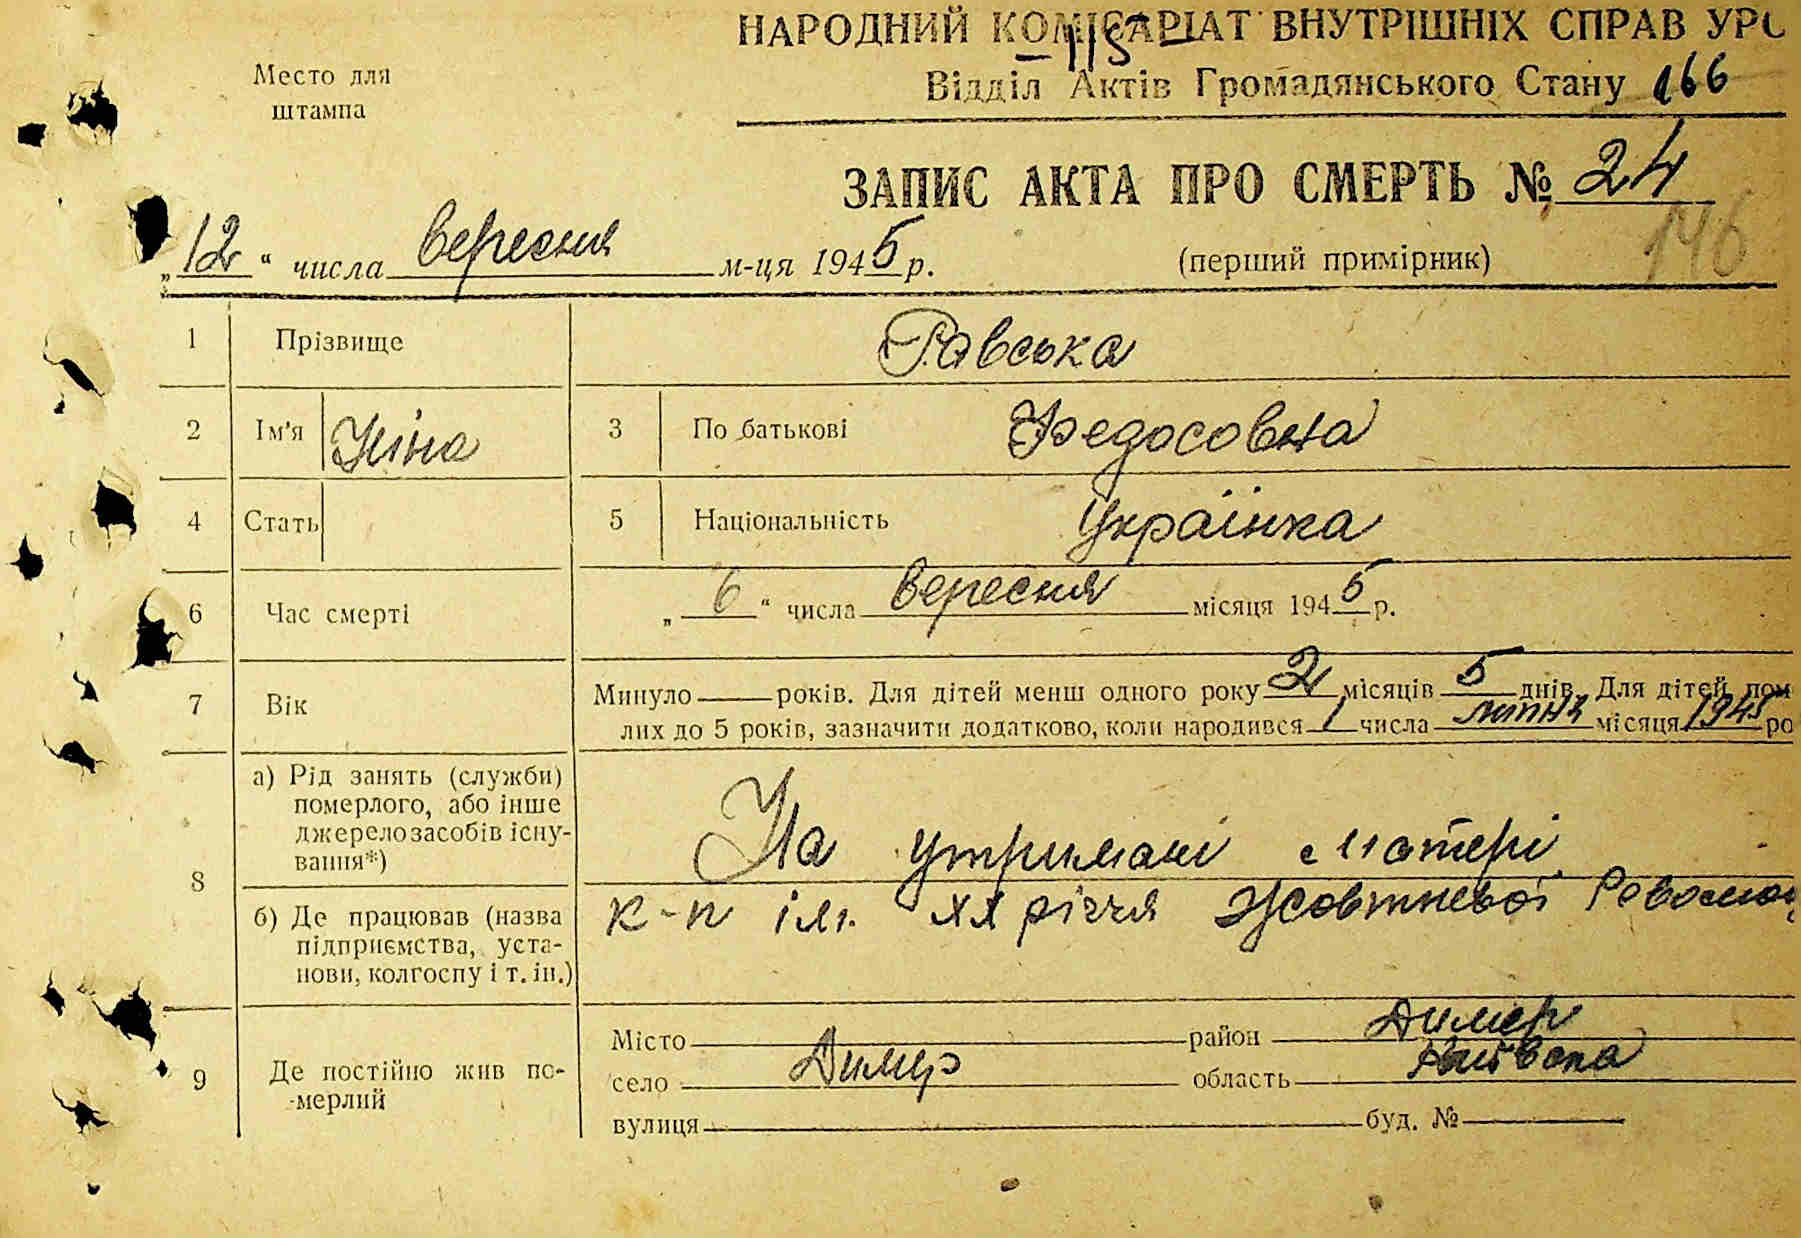 НАРОДНИЙ КОМІСАРІАТ ВНУТРІШНІХ СПРАВ УРС
115
Відділ Актів Громадянського Стану 166
Место для
штампа
ЗАПИС АКТА ПРО СМЕРТЬ № 24
146
„12“ числа вересня м-ця 1945 р.
(перший примірник)
1 Прізвище Равська
2 Ім'я Ніна 3 По батькові Федосовна
4 Стать 5 Національність Українка
6 Час смерті „6“ числа вересня місяця 1945 р.
7 Вік Минуло — років. Для дітей менш одного року 2 місяців 5 днів. Для дітей пом
лих до 5 років, зазначити додатково, коли народився 1 числа липня місяця 1945 ро
8 а) Рід занять (служби)
померлого, або інше
джерело засобів існу-
вання*)
На утримані матері
б) Де працював (назва
підприємства, уста-
нови, колгоспу і т. ін.)
к-п ім. ХХ річчя Жовтневої Революц
9 Де постійно жив по-
мерлий
Місто район Димер
село Димер область Київска
вулиця буд. №